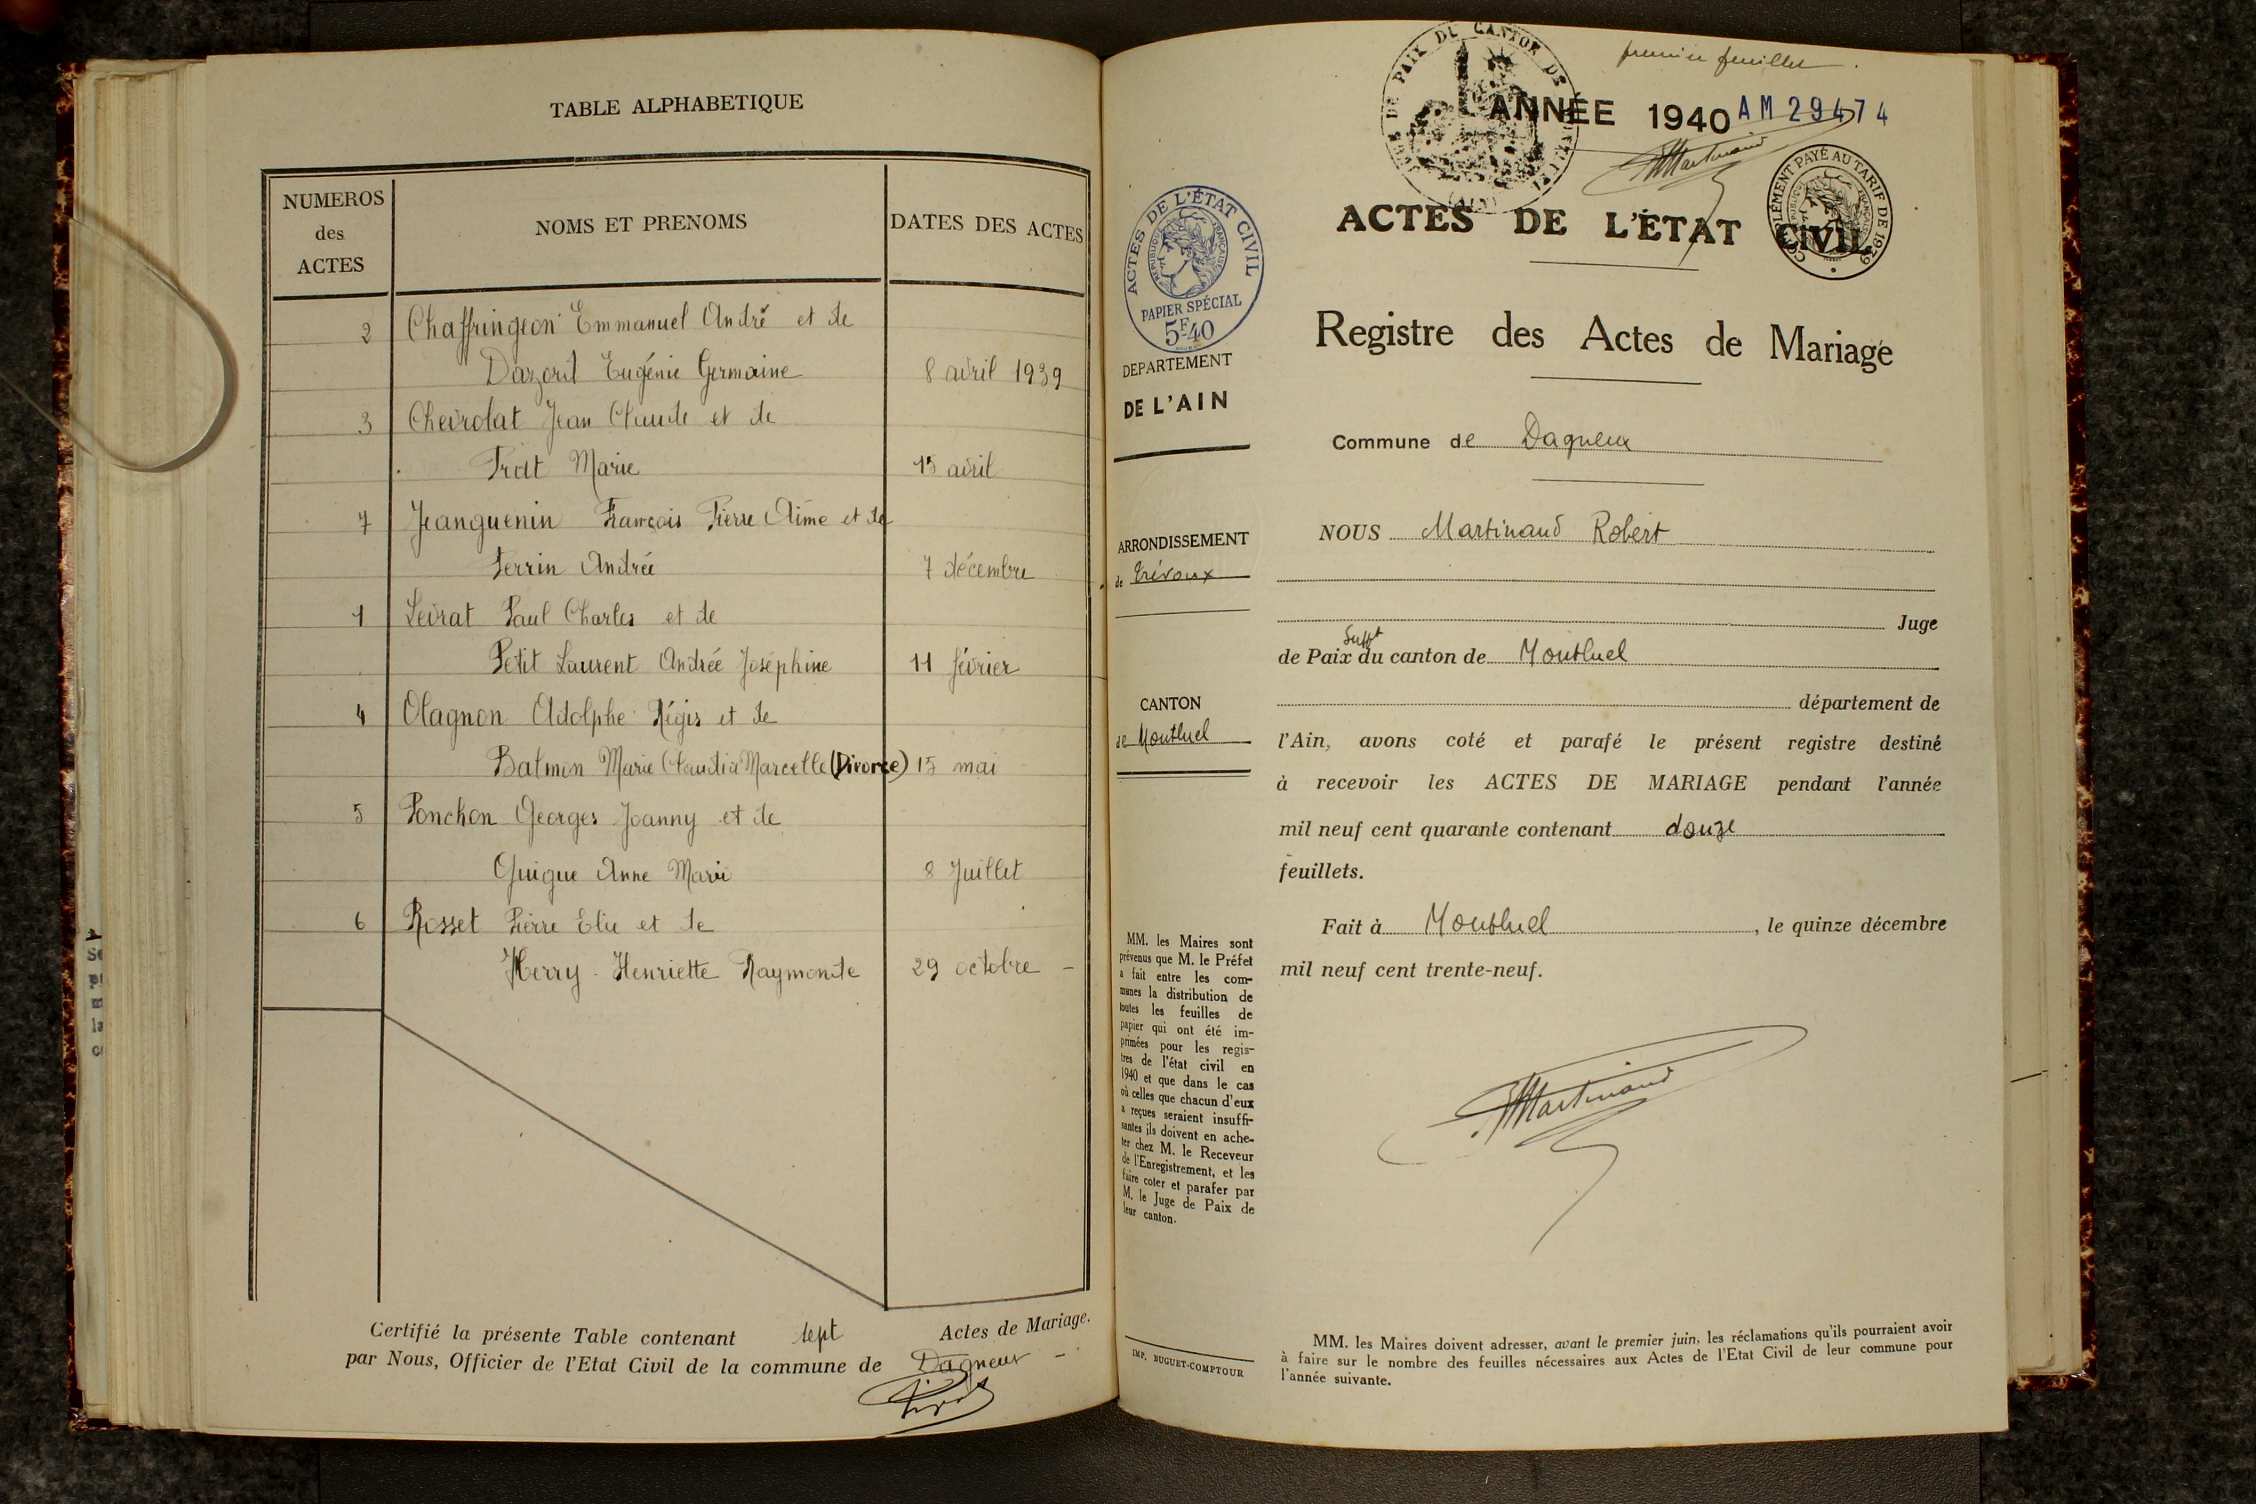 TABLE ALPHABETIQUE
NUMEROS
des
ACTES
NOMS ET PRENOMS
DATES DES ACTES
2 Chaffringeon Emmanuel André et de
Eugénie Germaine 8 avril 1939
3 Chevrolat Jean Claude et de
Marie 15 avril
7 Jeanguenin François Pierre Aimé et de
Perrin Andrée 7 décembre
1 Levrat Paul Charles et de
Petit Laurent Andrée Joséphine 11 février
4 Olagnon Adolphe Régis et de
Balmon Marie Claudia Marcelle (Divorce) 15 mai
5 Ponchon Georges Joanny et de
Guigue Anne Marie 8 Juillet
6 Rosset Pierre Elie et de
Herry Henriette Raymonde 29 octobre -
Certifié la présente Table contenant sept Actes de Mariage.
par Nous, Officier de l'Etat Civil de la commune de Dagneux -
premier feuillet.
JUGE DE PAIX DU CANTON DE
(AIN)
ANNÉE 1940 AM 29474
Martinand
COMPLÉMENT PAYÉ AU TARIF DE 1939
RÉPUBLIQUE FRANÇAISE
ACTES DE L'ÉTAT CIVIL
RÉPUBLIQUE FRANÇAISE
PAPIER SPÉCIAL
5F40
ACTES DE L'ÉTAT CIVIL
Registre des Actes de Mariage
DEPARTEMENT
DE L'AIN
Commune de Dagneux
ARRONDISSEMENT
de Trévoux
CANTON
de Montluel
NOUS Martinand Robert
Juge
de Paix Supt du canton de Montluel
département de
l'Ain, avons coté et parafé le présent registre destiné
à recevoir les ACTES DE MARIAGE pendant l'année
mil neuf cent quarante contenant douze
feuillets.
Fait à Montluel, le quinze décembre
mil neuf cent trente-neuf.
Martinand
MM. les Maires sont
prévenus que M. le Préfet
a fait entre les com-
munes la distribution de
toutes les feuilles de
papier qui ont été im-
primées pour les regis-
tres de l'état civil en
1940 et que dans le cas
où celles que chacun d'eux
a reçues seraient insuffi-
santes ils doivent en ache-
ter chez M. le Receveur
de l'Enregistrement, et les
faire coter et parafer par
M. le Juge de Paix de
leur canton.
IMP. NUGUET-COMPTOUR
MM. les Maires doivent adresser, avant le premier juin, les réclamations qu'ils pourraient avoir
à faire sur le nombre des feuilles nécessaires aux Actes de l'Etat Civil de leur commune pour
l'année suivante.